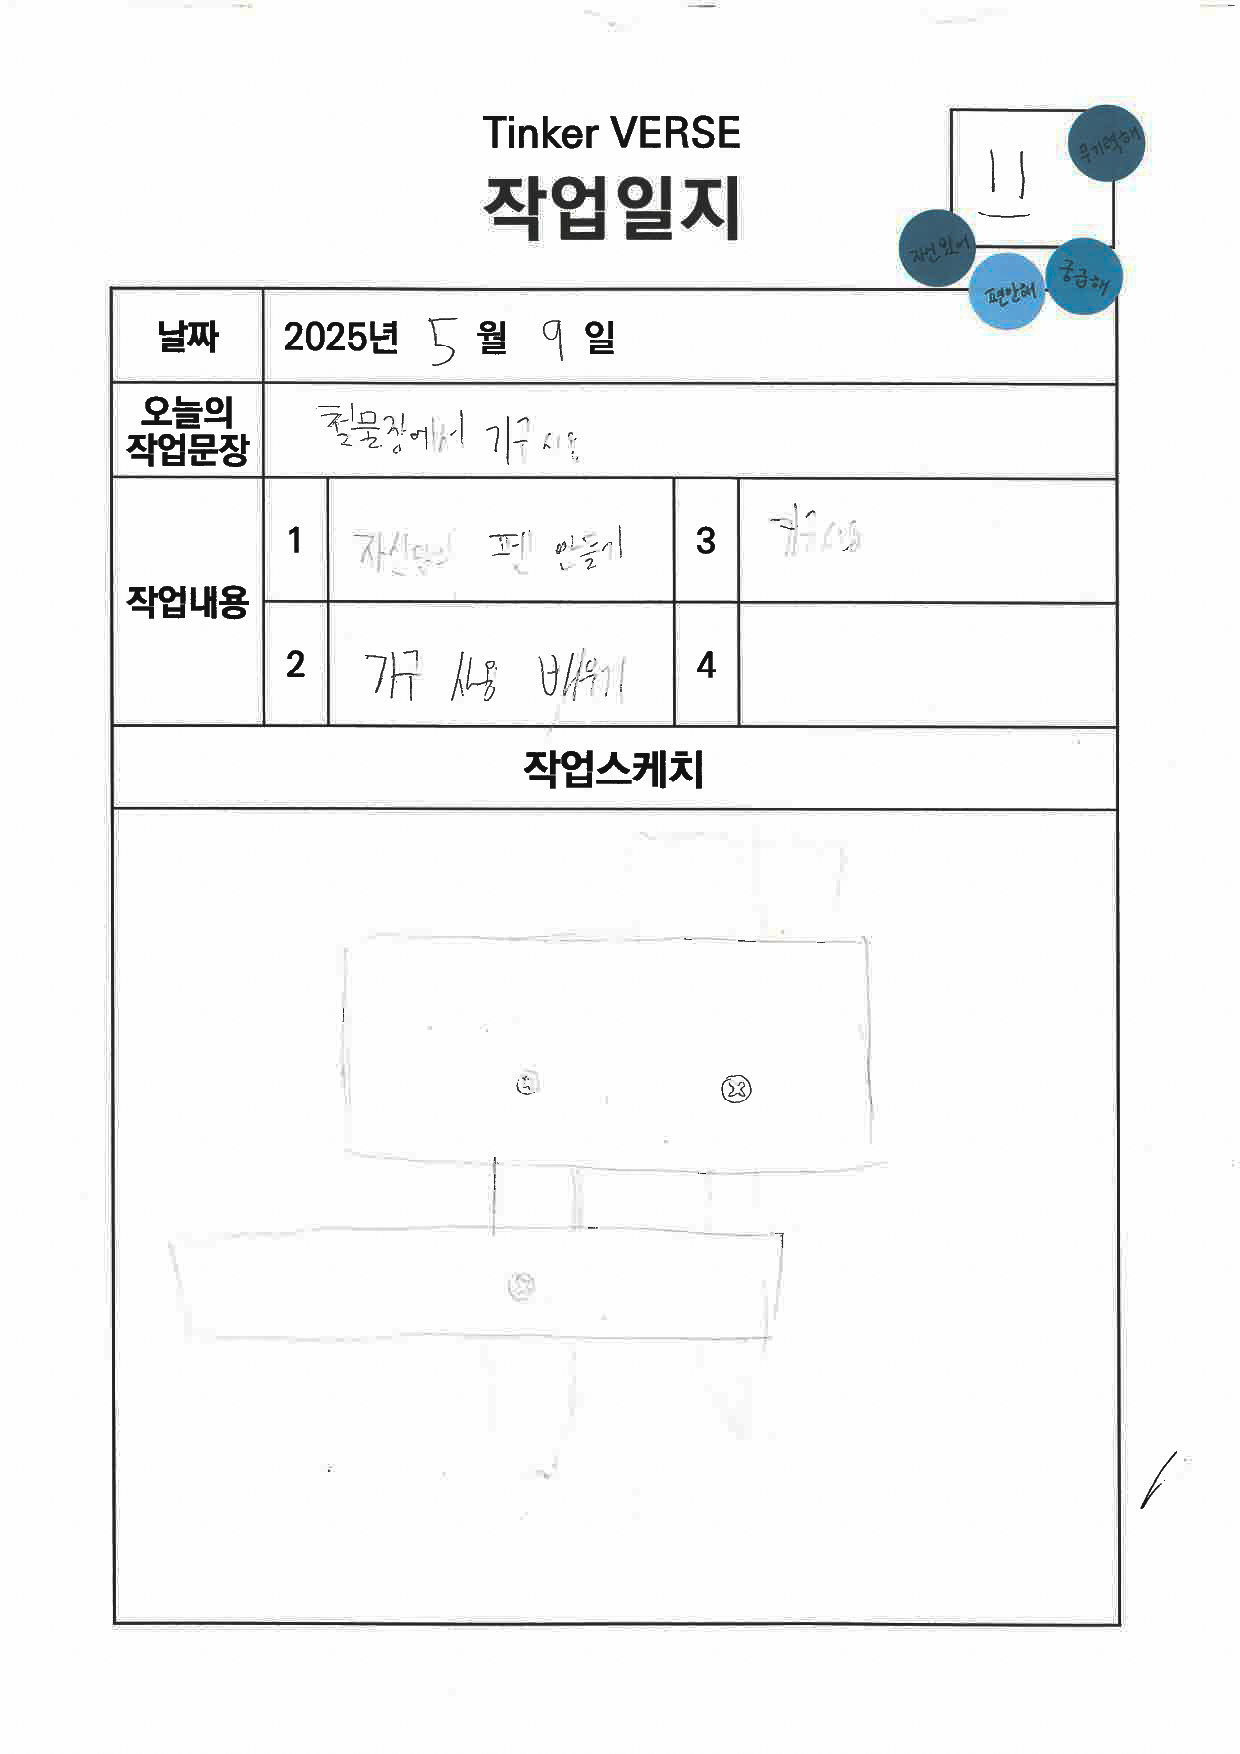 Tinker VERSE
작업일지
무기력해
자신있어
편안해
궁금해
날짜
2025년 5월 9일
오늘의
작업문장
철물장에서 기구 사용
작업내용
1
펜 만들기
3
2
기구 사용 배우기
4
작업스케치